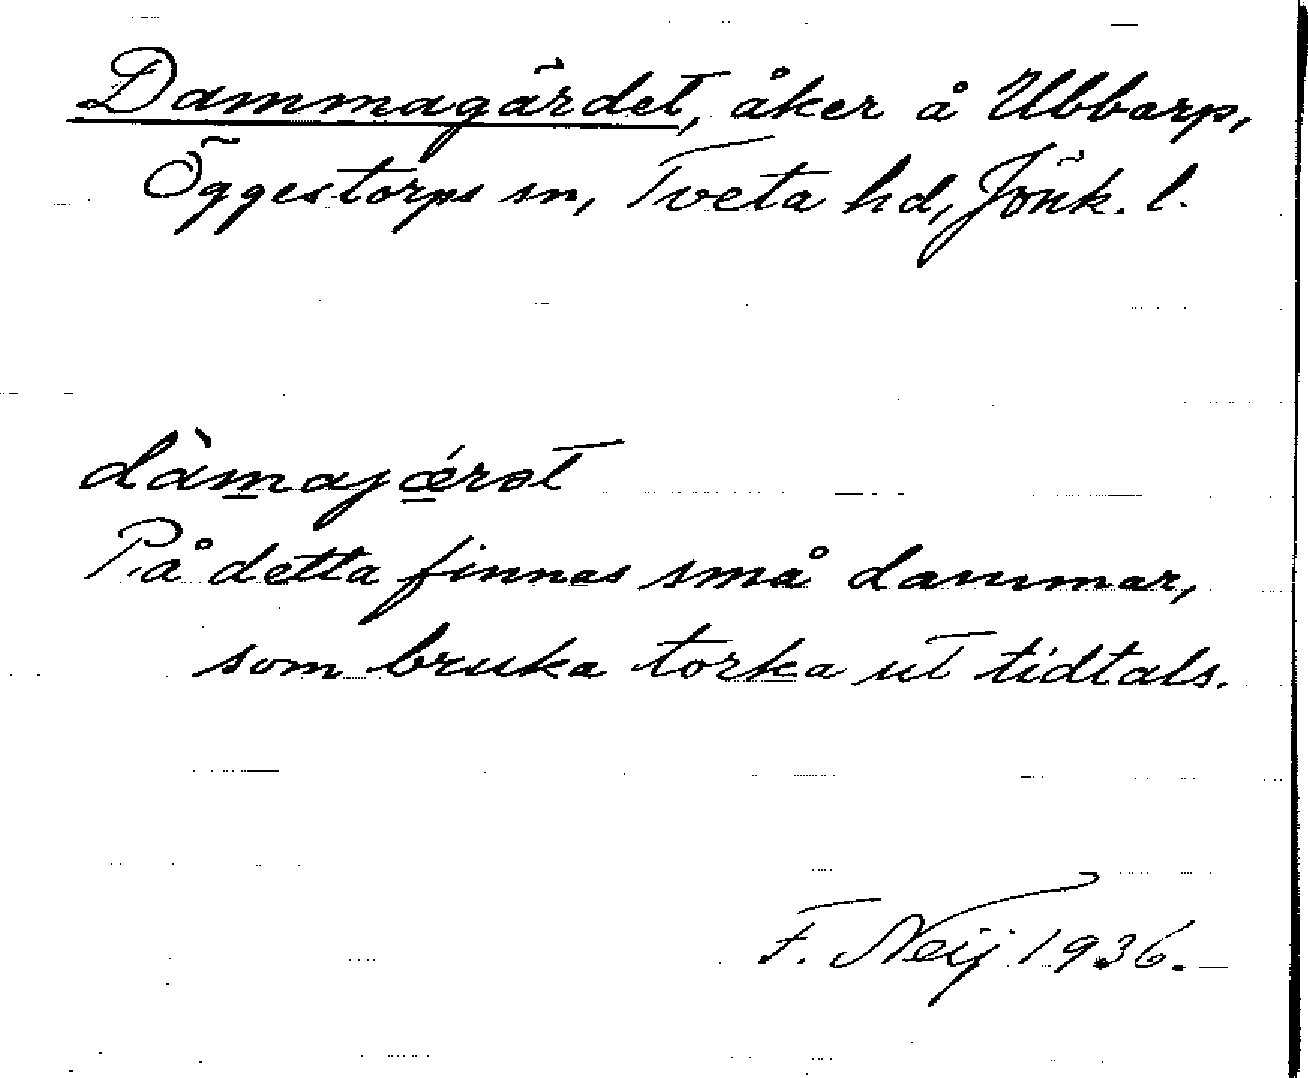 Dammagärdet, åker å Ubbarp,
Öggestorps sn, Tveta hd, Jönk. l.
dàmajǽrət
På detta finnas små dammar,
som bruka torka ut tidtals.
F. Neij 1936.